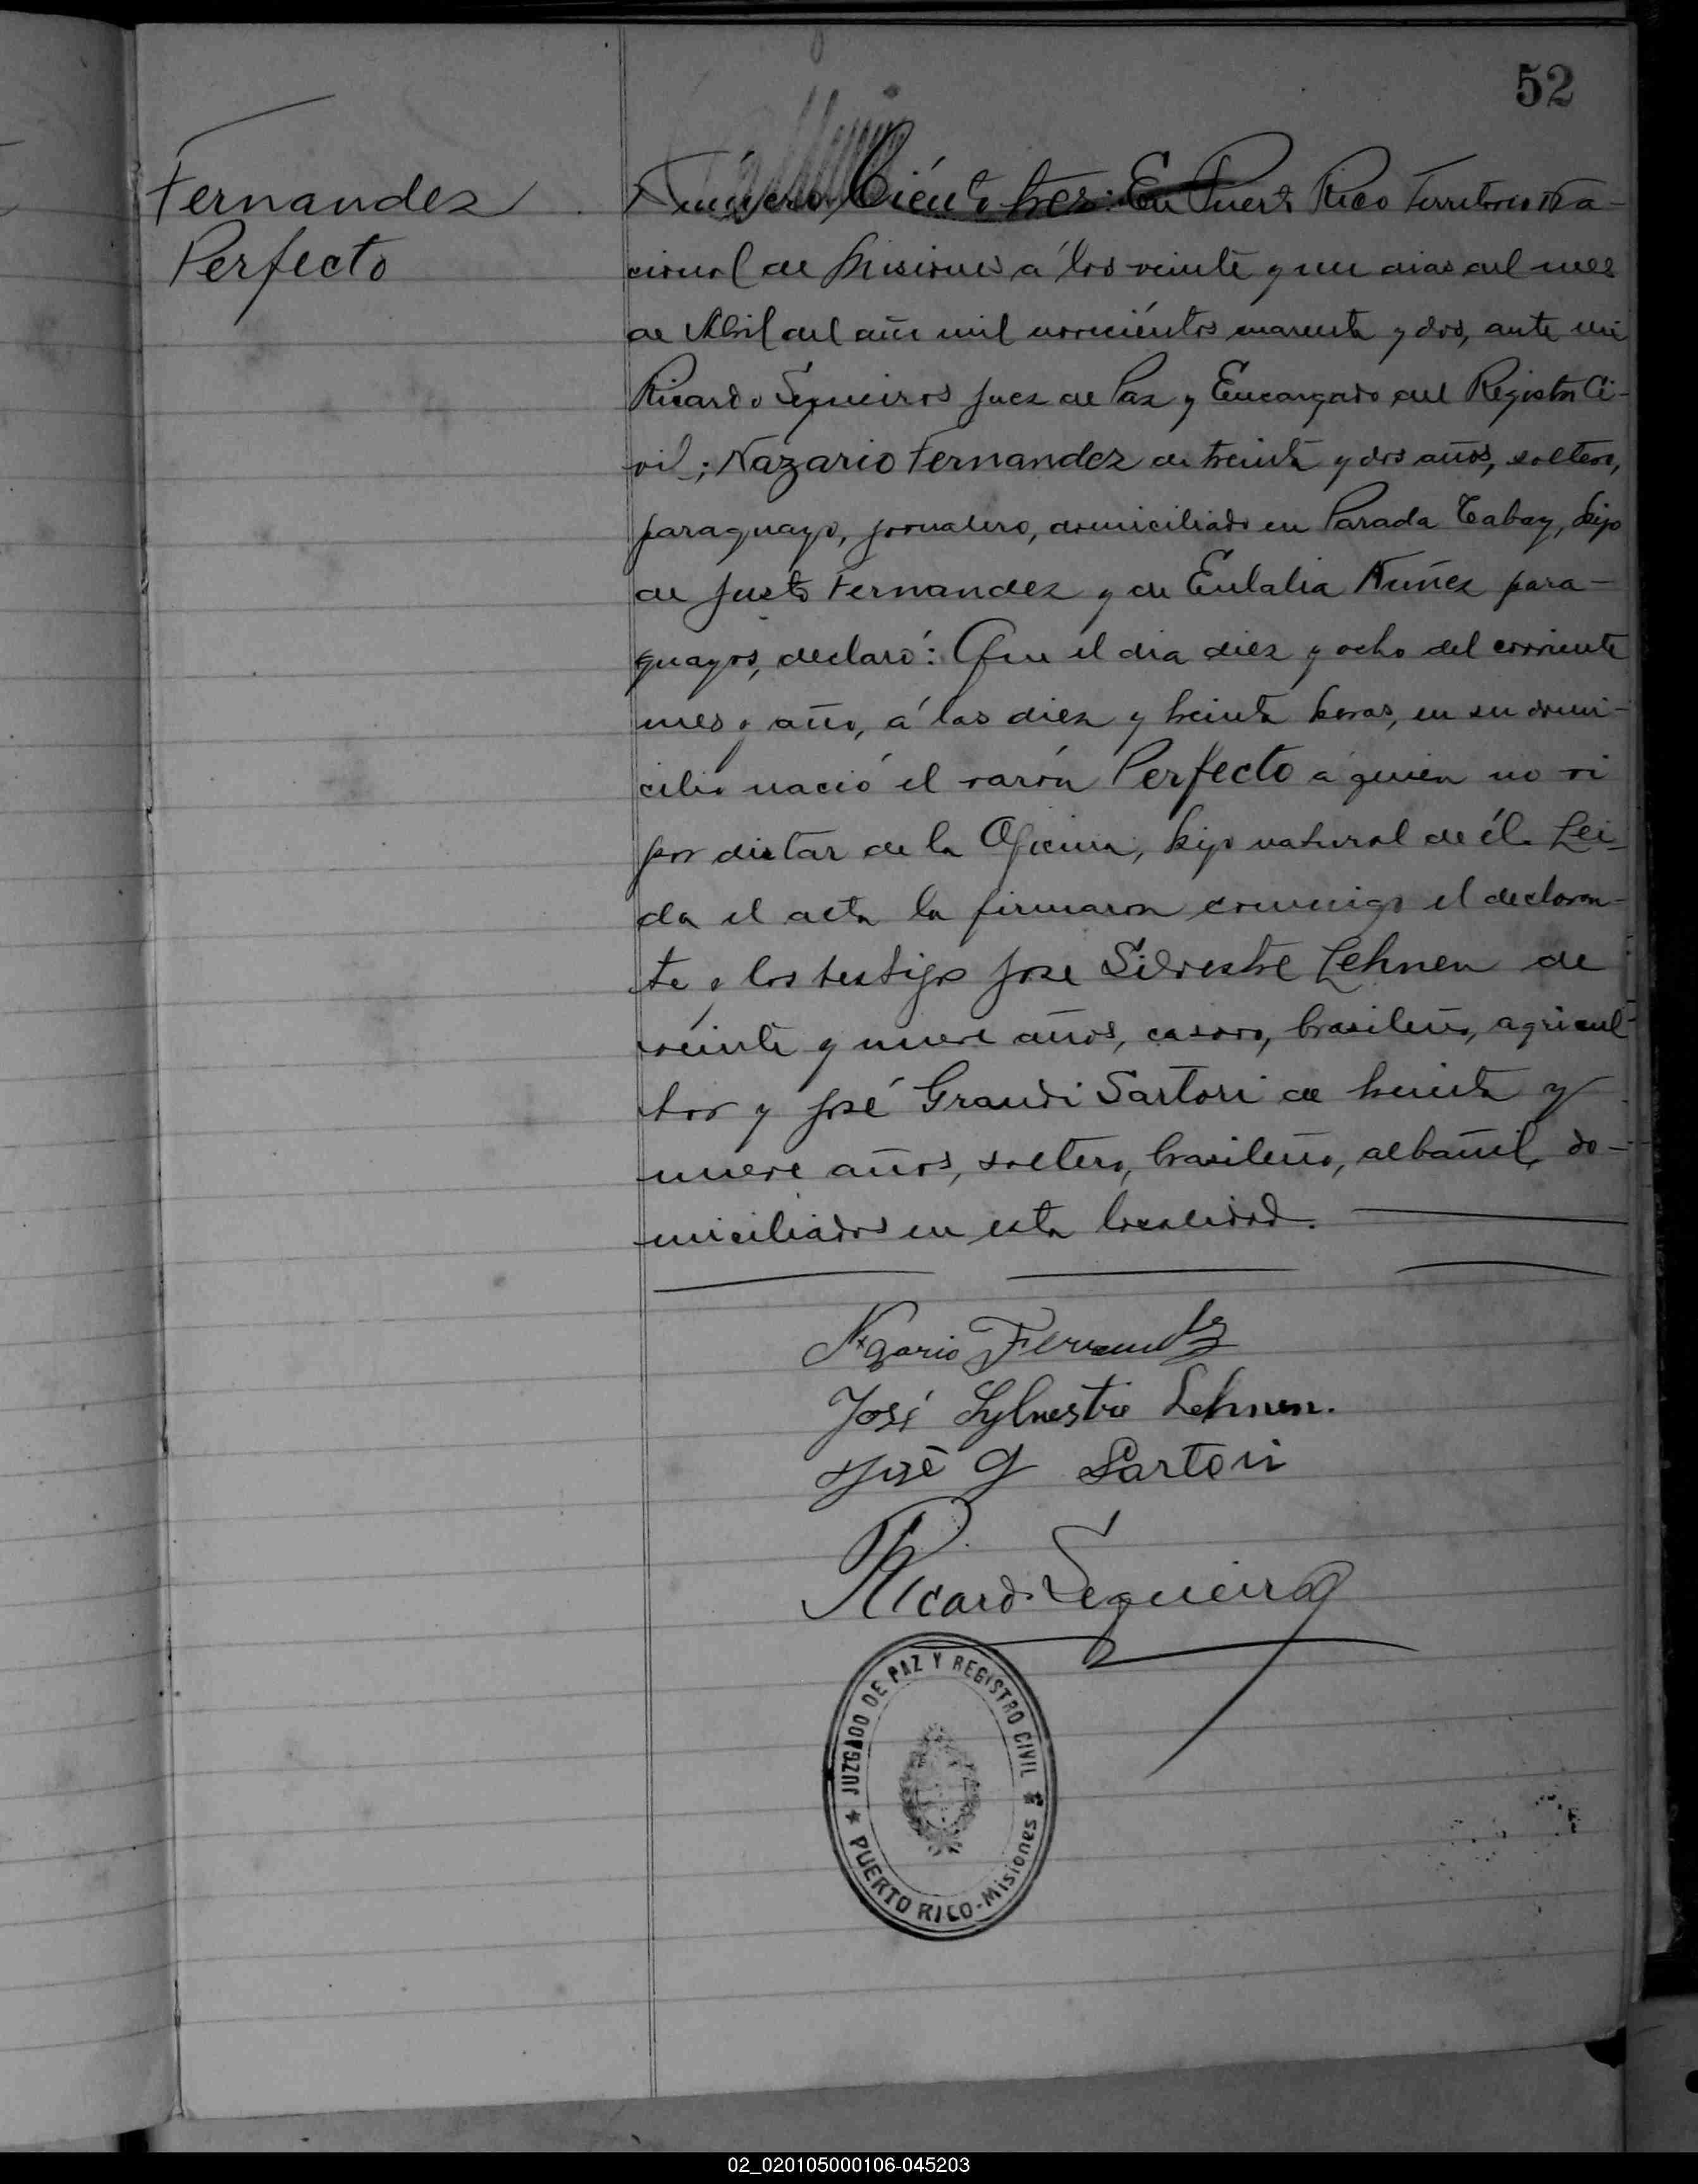 52
Fernandez
Perfecto
Número Ciénto tres: En Puerto Rico Territorio Na-
cional de Misiones á los veinte y un dias del mes
de Abril del año mil noveciéntos cuarenta y dos, ante mi
Ricardo Sequeiros Juez de Paz y Encargado del Registro Ci-
vil; Nazario Fernandez de treinta y dos años, soltero,
paraguayo, jornalero, domiciliado en Parada Tabay, hijo
de Justo Fernandez y de Eulalia Nuñez para-
guayos, declaró: Que el dia diez y ocho del corriente
mes y año, á las diez y treinta horas, en su domi-
cilio nació el varón Perfecto a quien no vi
por distar de la Oficina, hijo natural de él. Lei-
da el acta la firmaron conmigo el declaran-
te y los testigos Jose Silvestre Lehnen de
veinte y nueve años, casado, brasileño, agricul-
tor y José Grandi Sartori de treinta y
nueve años, soltero, brasileño, albañil, do-
miciliados en esta localidad.
Nazario Fernandez
José Sylvestre Lehnen.
José G Sartori
Ricardo Sequeiros
JUZGADO DE PAZ Y REGISTRO CIVIL
PUERTO RICO-Misiones
02_020105000106-045203